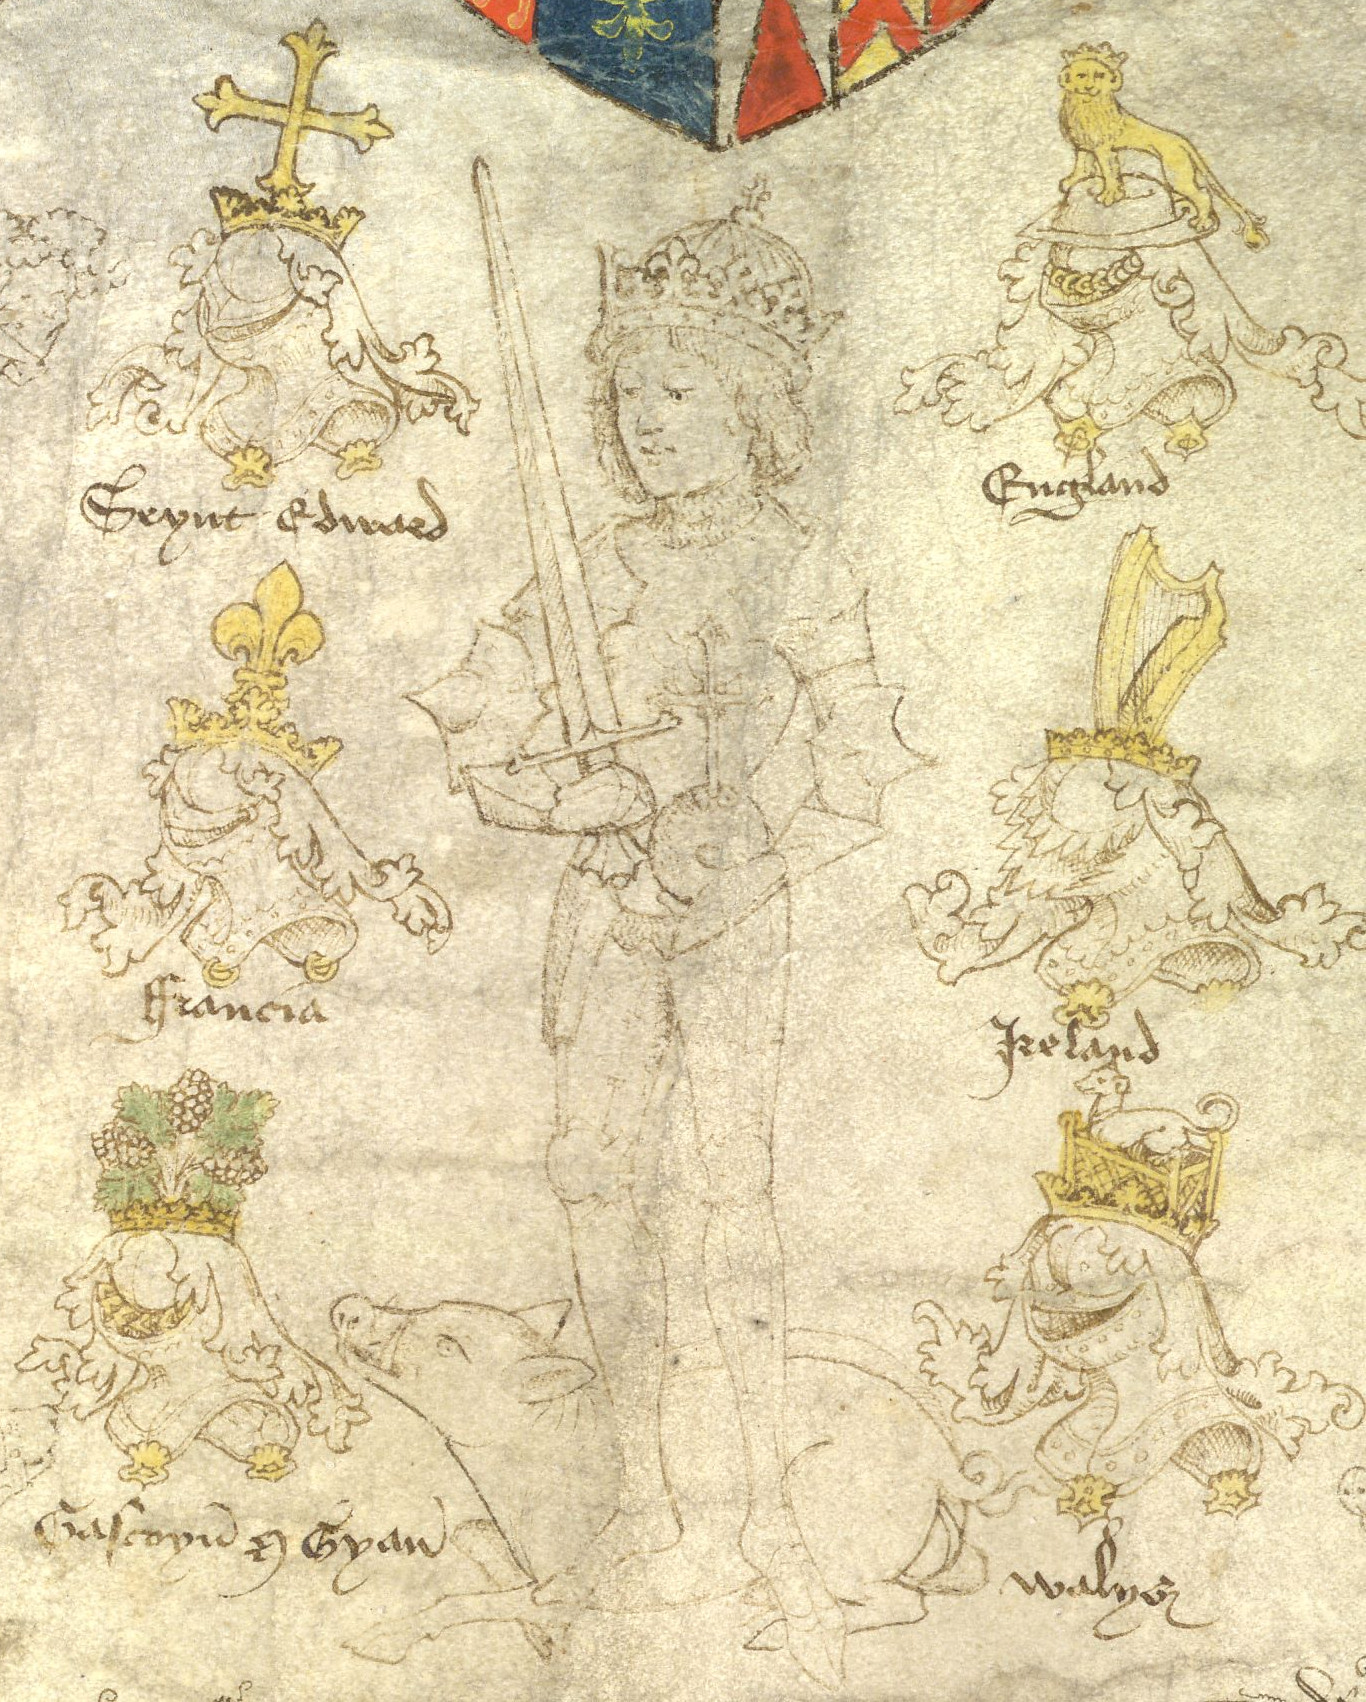 Seynt Edward
England
ffrancia
Ireland
Gascoyn & Gyan
walys